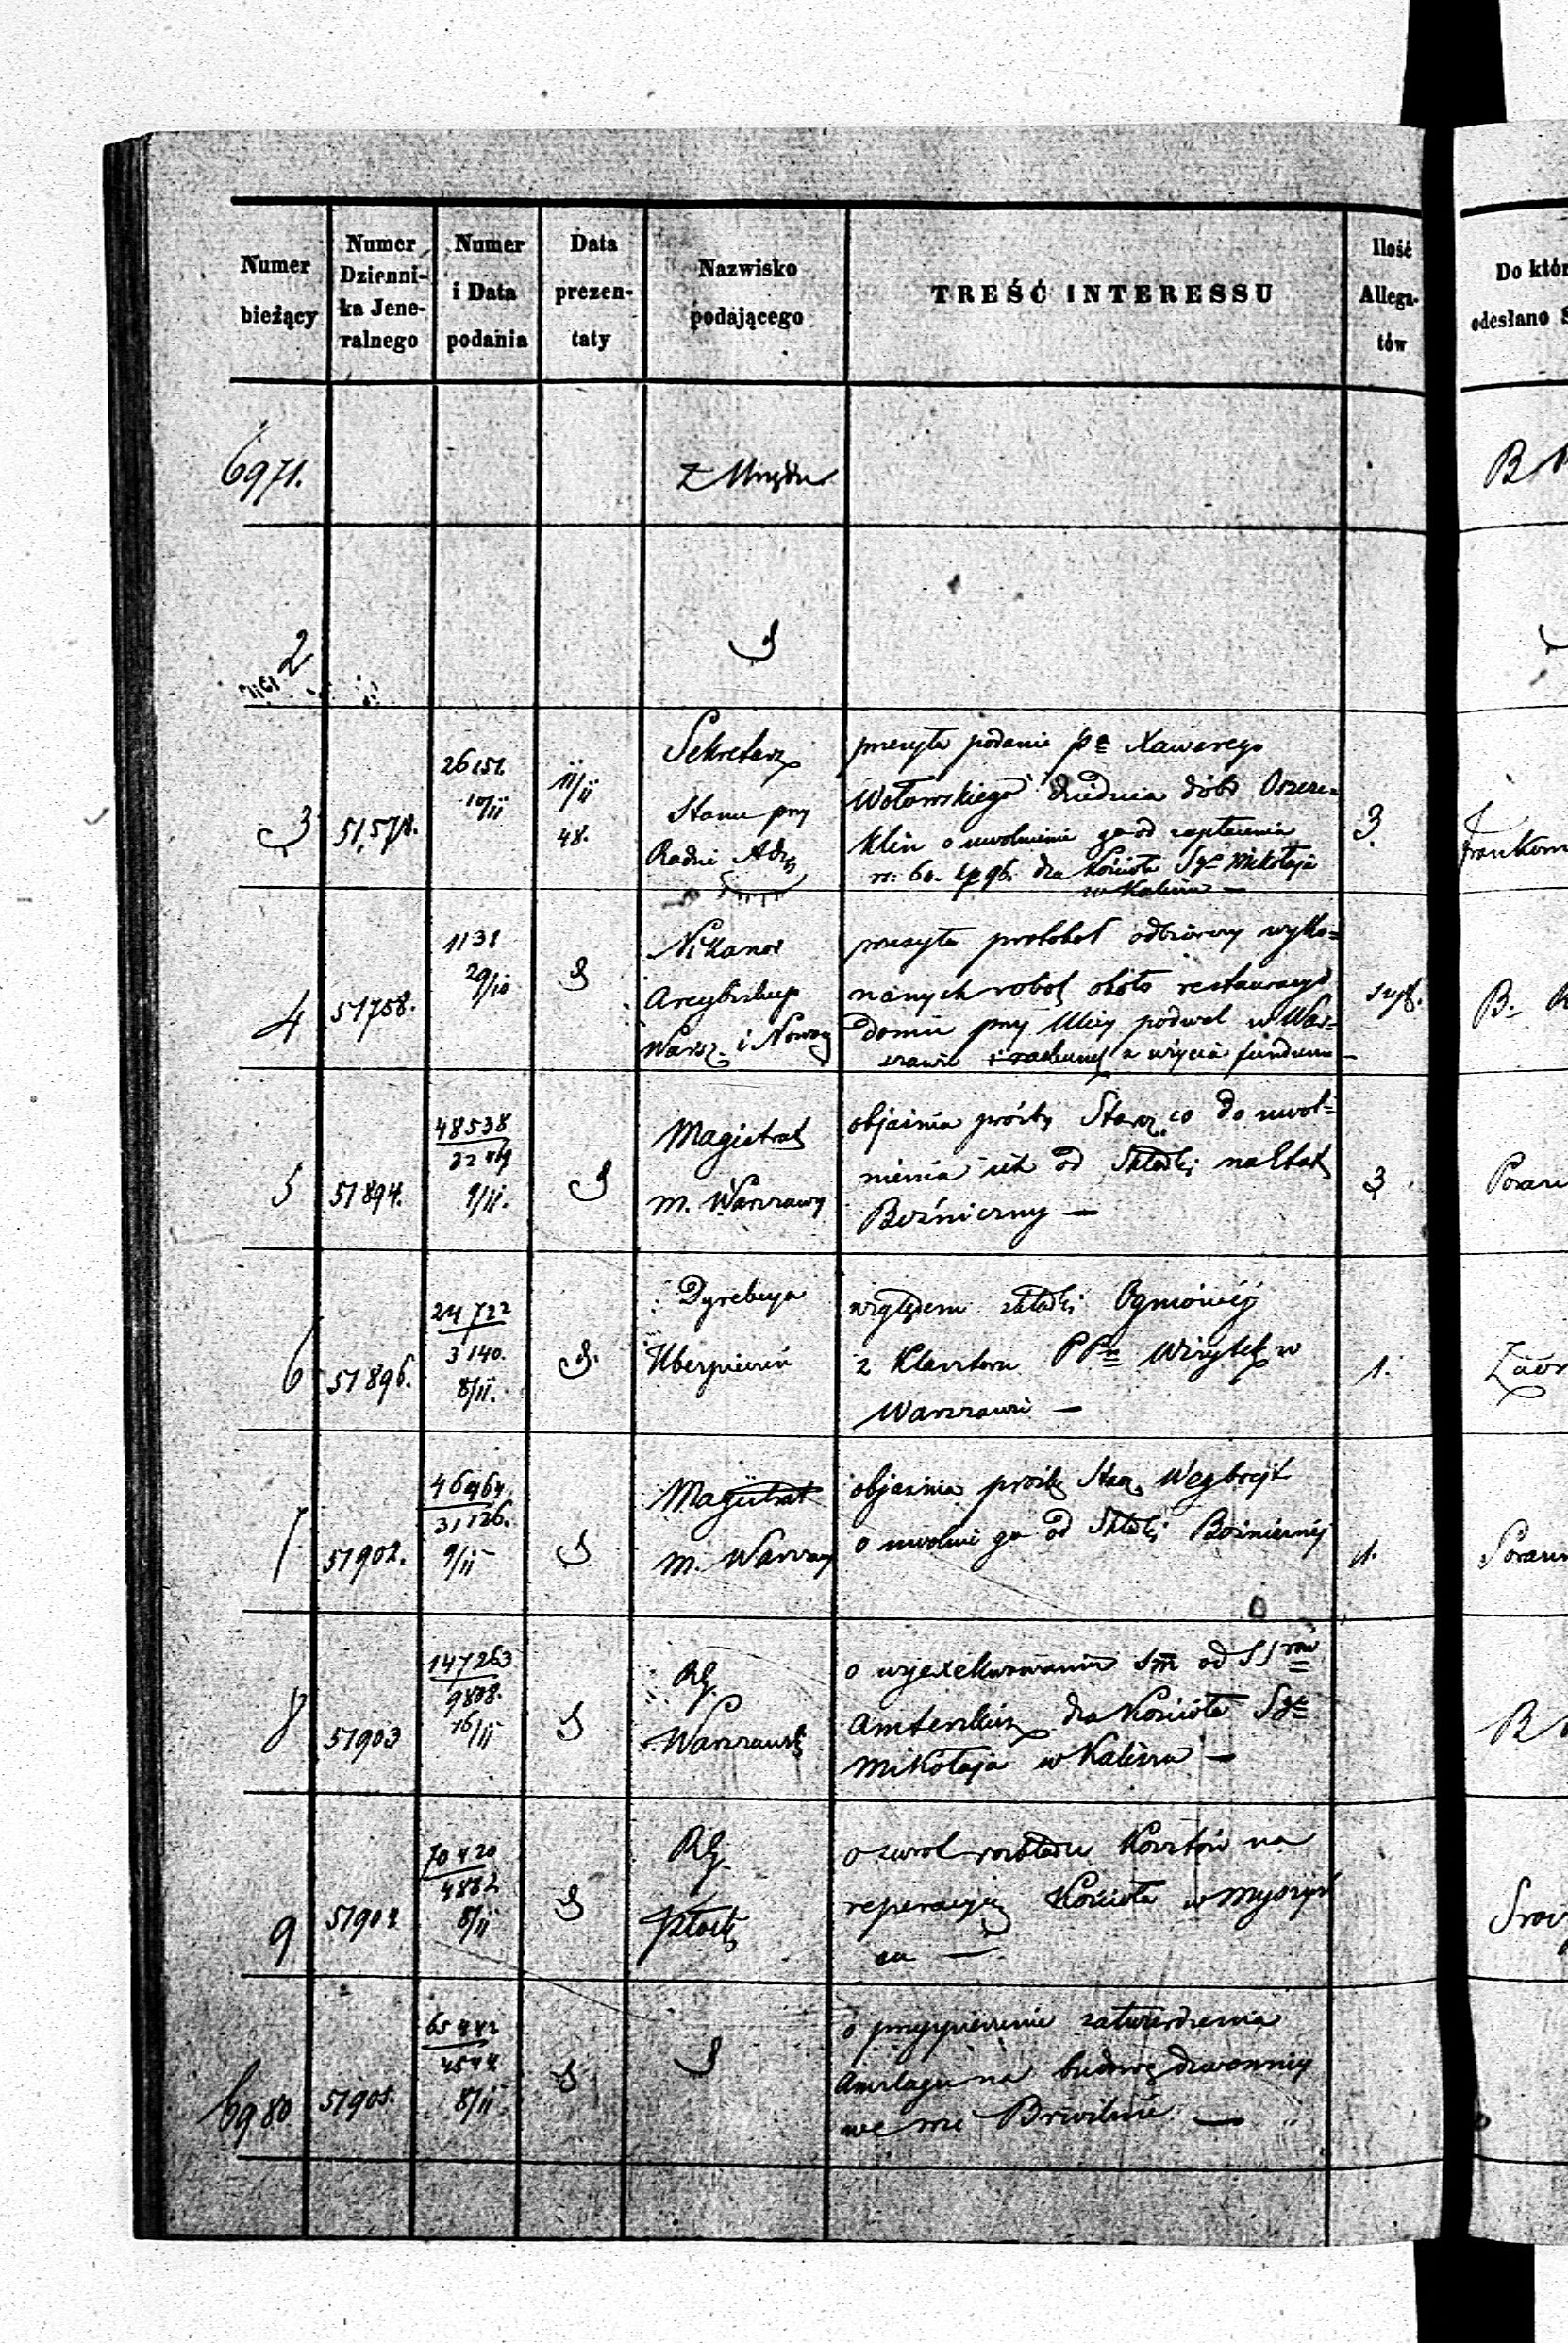 Numer bieżący
Numer Dzienni-ka Jene-ralnego
Numer i Data podania
Data prezen-taty
Nazwisko podającego
TREŚĆ INTERESSU
Ilość Allega-tów
Do któr
odesłano S
6971.
z Urzędu
B
2
3
51,578.
26151.
10/11
11/11
48.
Sekretarz
Stanu przy
Radzie Adz
przesyła podanie Xawerego
Wołowskiego dziedzica dóbr Oszcze=
klin o uwolnienie go od zapłacenia
dla Kościoła Sgo Mikołaja
w Kaliszu —
3.
4
51758.
1138
29/10
Nikanor
Arcybiskup
Warsz. i Nowog
przesyła protokół odbiorczy wyko=
nanych robot około restauracyi
domu przy Ulicy podwal w War=
szawie i rachunek z użycia funduszu —
B.
5
51894.
48538
9/11.
Magistrat
m. Warszawy
objaśnia prośby Staroz. co do uwol=
nienia ich od Składki na Etat
Bożniczny —
3
6
51896.
24722
3140.
8/11.
Dyrekcya
Ubezpieczeń
względem składki Ogniowéj
z Klasztoru PPn Wizytek w
Warszawie —
1.
7
51902.
46964
31126.
9/11
Magistrat
m. Warszawy
objaśnia prośbę Staroz.
o uwolnie go od Składki Bożnicznéj
1.
8
51903
147263
9808.
16/11
RG.
Warszawsk
o wyexekwowanie od
dla Kościoła Sgo
Mikołaja w Kaliszu —
B
9
51904
70420
4882
8/11
RG.
Płock
o zwrot rozkładu Kosztów na
reperacyię Kościoła w Myszyń
cu —
6980
51905.
65442
4544
8/11
o przyspieszenie zatwierdzenia
Anszlagu na budowę dzwonnicy
we wsi Brwilnie —